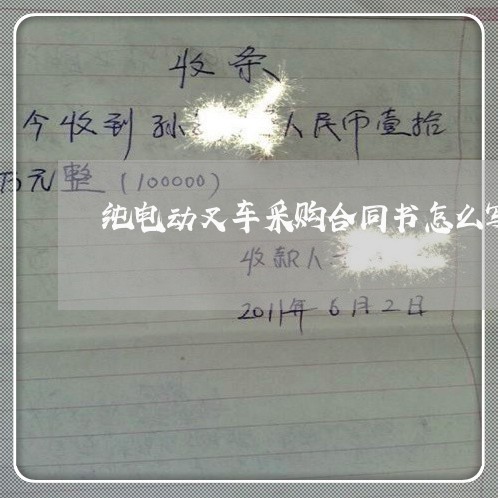 收条
今收到孙 人民币壹拾
万元整(100000)
纯电动叉车采购合同书怎么写
收款人
2011年6月2日